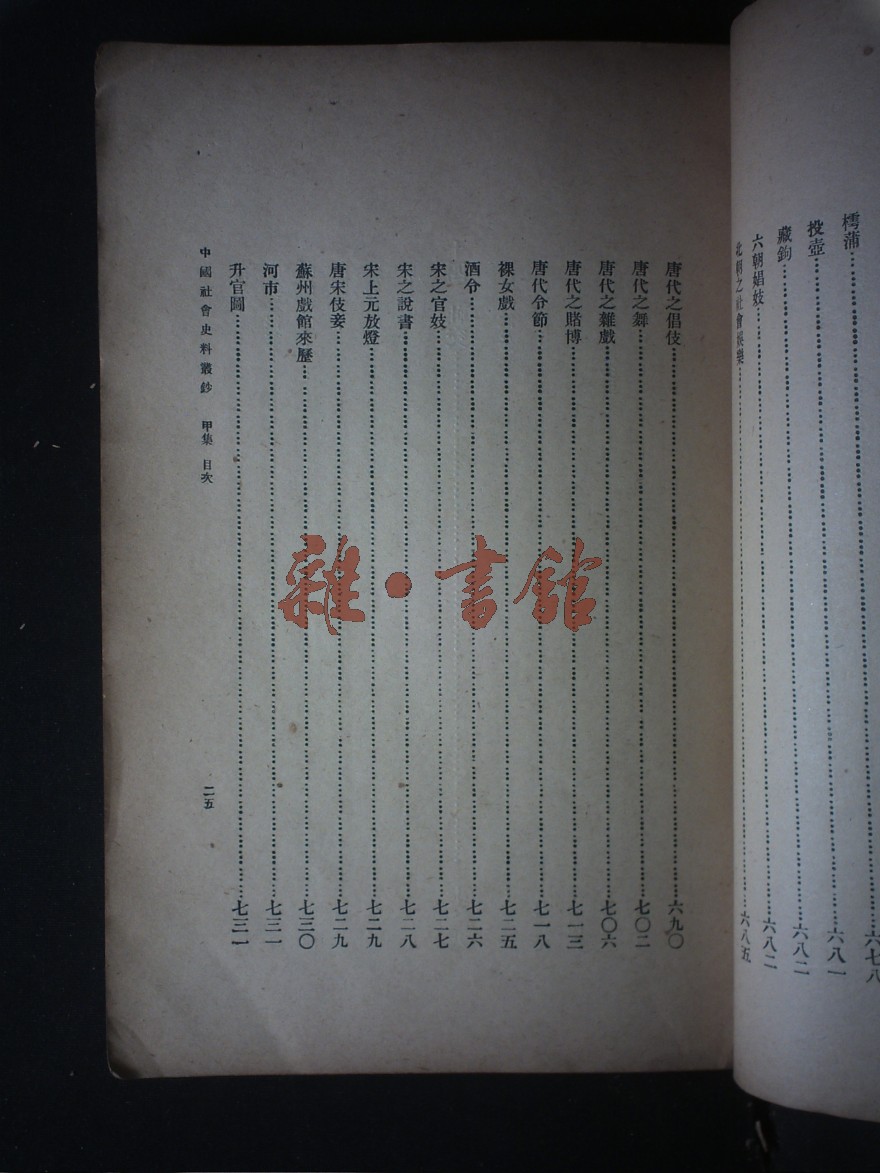 樗蒲……六七八
投壺……六八一
藏鉤……六八二
六朝娼妓……六八二
北朝之社會娛樂……六八五
唐代之倡伎……六九〇
唐代之舞……七〇二
唐代之雜戲……七〇六
唐代之賭博……七一三
唐代令節……七一八
裸女戲……七二五
酒令……七二六
宋之官妓……七二七
宋之說書……七二八
宋上元放燈……七二九
唐宋伎妾……七二九
蘇州戲館來歷……七三〇
河市……七三一
升官圖……七三一
中國社會史料叢鈔 甲集 目次 二五
雜·書館